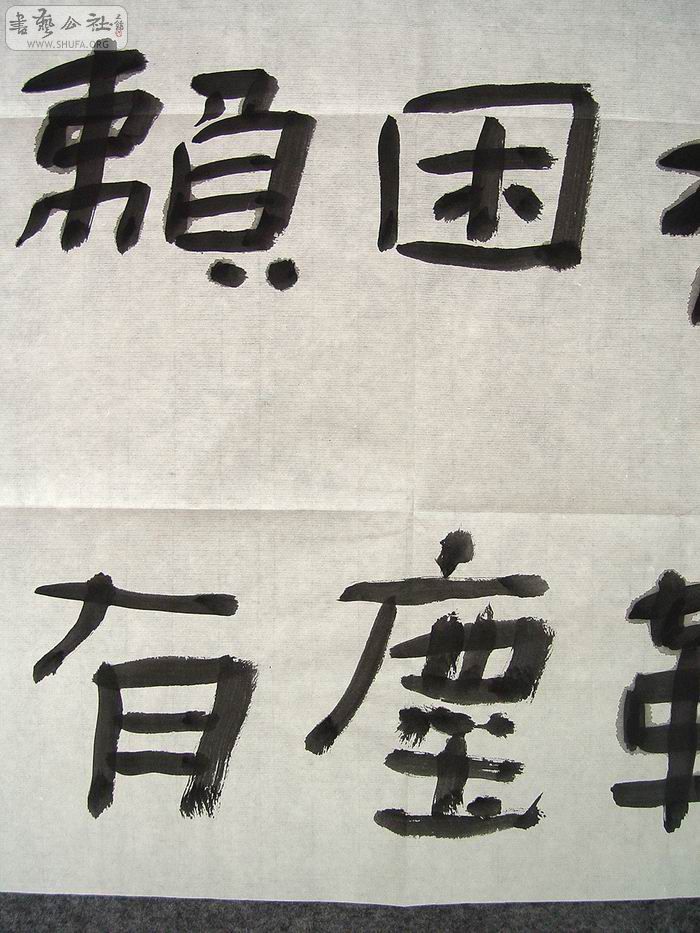 書藝公社
WWW.SHUFA.ORG
困廛
賴有